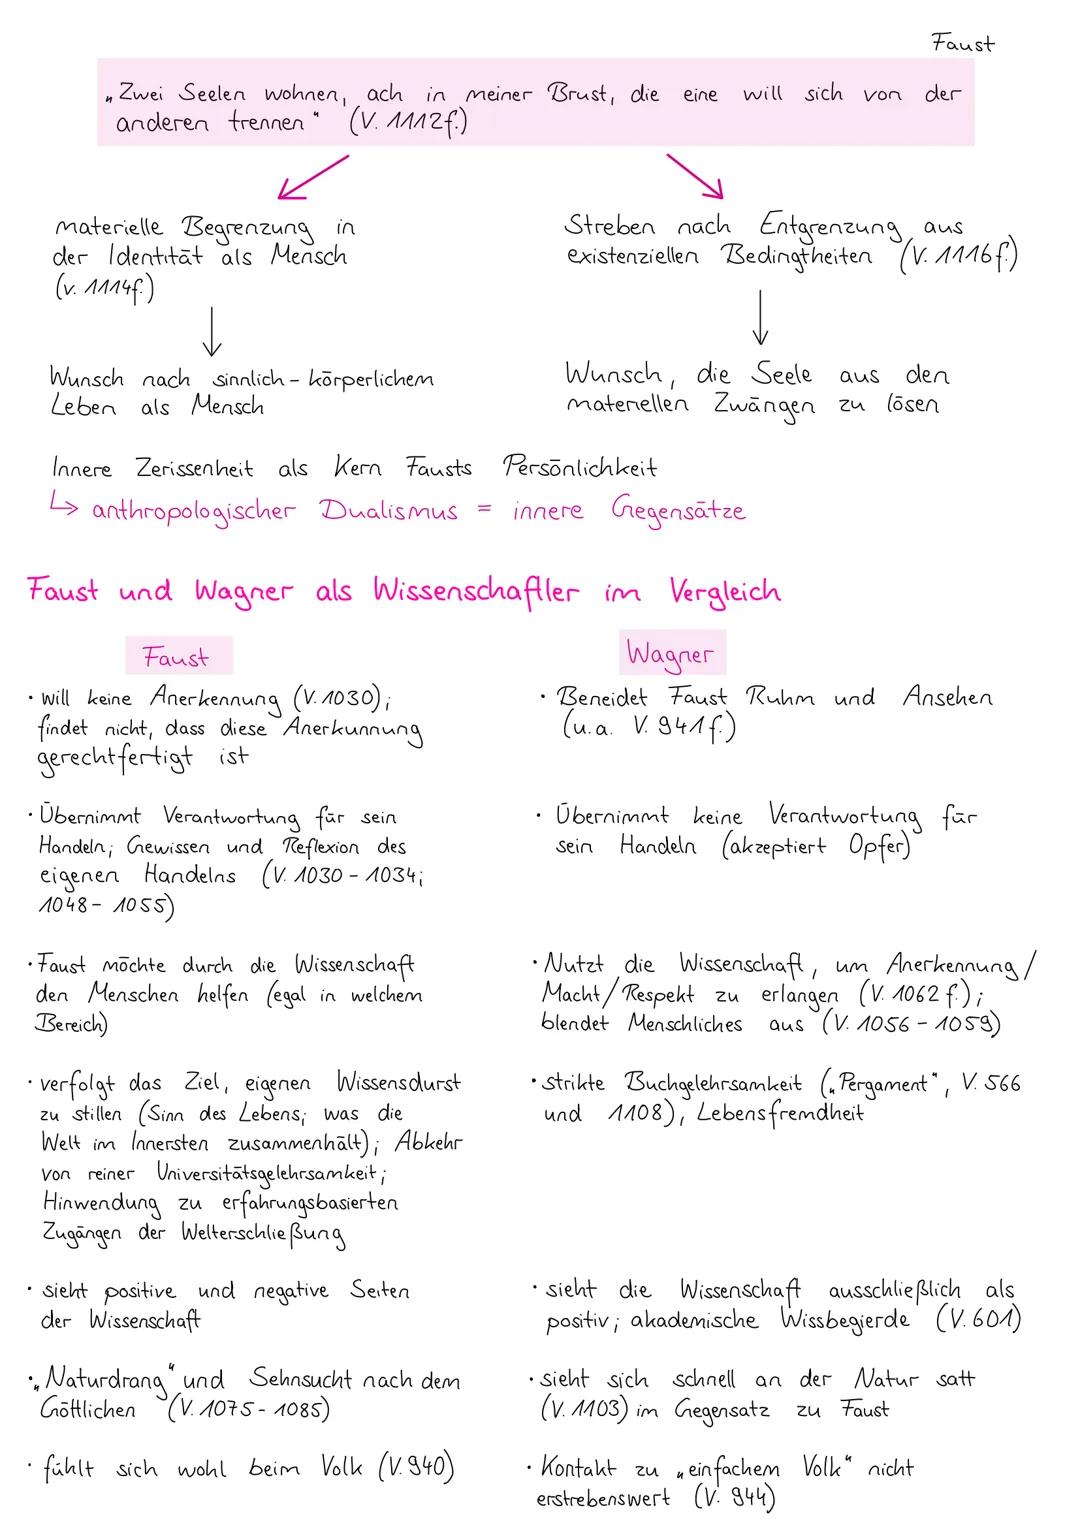 Faust
„Zwei Seelen wohnen, ach in meiner Brust, die eine will sich von der
anderen trennen" (V. 1112f.)
materielle Begrenzung in
der Identität als Mensch
(v. 1114f.)
Streben nach Entgrenzung aus
existenziellen Bedingtheiten (V. 1116f.)
Wunsch nach sinnlich-körperlichem
Leben als Mensch
Wunsch, die Seele aus den
materiellen Zwängen zu lösen
Innere Zerissenheit als Kern Fausts Persönlichkeit
↳ anthropologischer Dualismus = innere Gegensätze
Faust und Wagner als Wissenschaftler im Vergleich
Faust
• will keine Anerkennung (V. 1030);
findet nicht, dass diese Anerkunnung
gerechtfertigt ist
• Übernimmt Verantwortung für sein
Handeln; Gewissen und Reflexion des
eigenen Handelns (V. 1030 - 1034;
1048 - 1055)
• Faust möchte durch die Wissenschaft
den Menschen helfen (egal in welchem
Bereich)
• verfolgt das Ziel, eigenen Wissensdurst
zu stillen (Sinn des Lebens; was die
Welt im Innersten zusammenhält); Abkehr
von reiner Universitätsgelehrsamkeit;
Hinwendung zu erfahrungsbasierten
Zugängen der Welterschließung
• sieht positive und negative Seiten
der Wissenschaft
• „Naturdrang" und Sehnsucht nach dem
Göttlichen (V. 1075 - 1085)
• fühlt sich wohl beim Volk (V. 940)
Wagner
• Beneidet Faust Ruhm und Ansehen
(u.a. V. 941f.)
• Übernimmt keine Verantwortung für
sein Handeln (akzeptiert Opfer)
• Nutzt die Wissenschaft, um Anerkennung/
Macht/Respekt zu erlangen (V. 1062 f.);
blendet Menschliches aus (V. 1056 - 1059)
• strikte Buchgelehrsamkeit („Pergament", V. 566
und 1108), Lebensfremdheit
• sieht die Wissenschaft ausschließlich als
positiv; akademische Wissbegierde (V. 601)
• sieht sich schnell an der Natur satt
(V. 1103) im Gegensatz zu Faust
• Kontakt zu „einfachem Volk" nicht
erstrebenswert (V. 944)